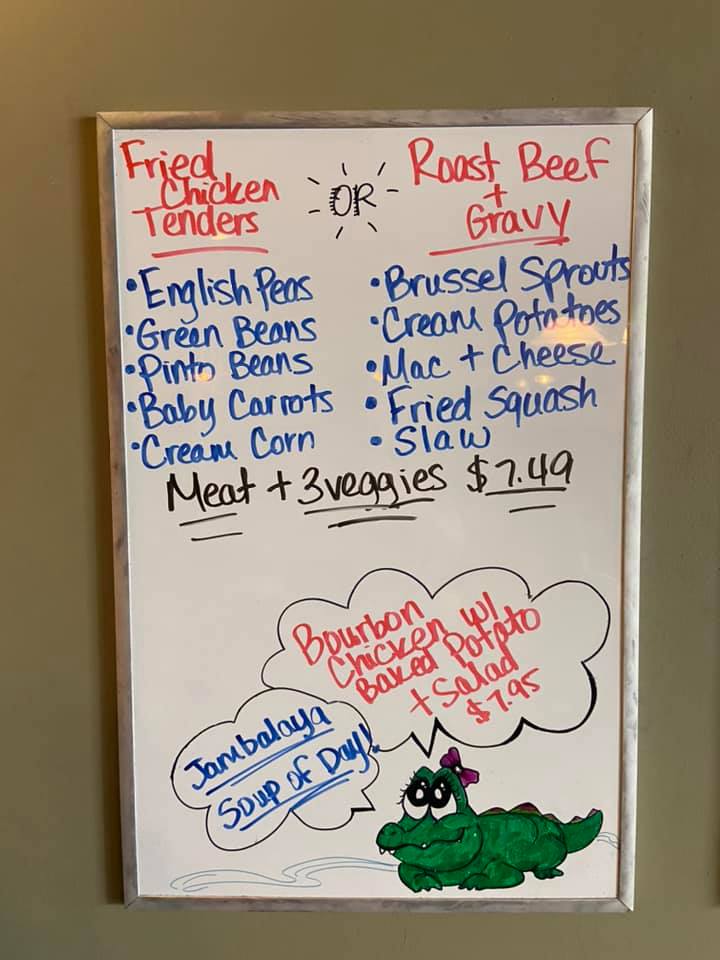 Fried
Chicken
Tenders
OR
Roast Beef
+
Gravy
•English Peas
•Green Beans
•Pinto Beans
•Baby Carrots
•Cream Corn
•Brussel Sprouts
•Cream Potatoes
•Mac + Cheese
•Fried Squash
•Slaw
Meat + 3 veggies $7.49
Bourbon
Chicken w/
Baked Potato
+ Salad
$7.95
Jambalaya
Soup of Day!